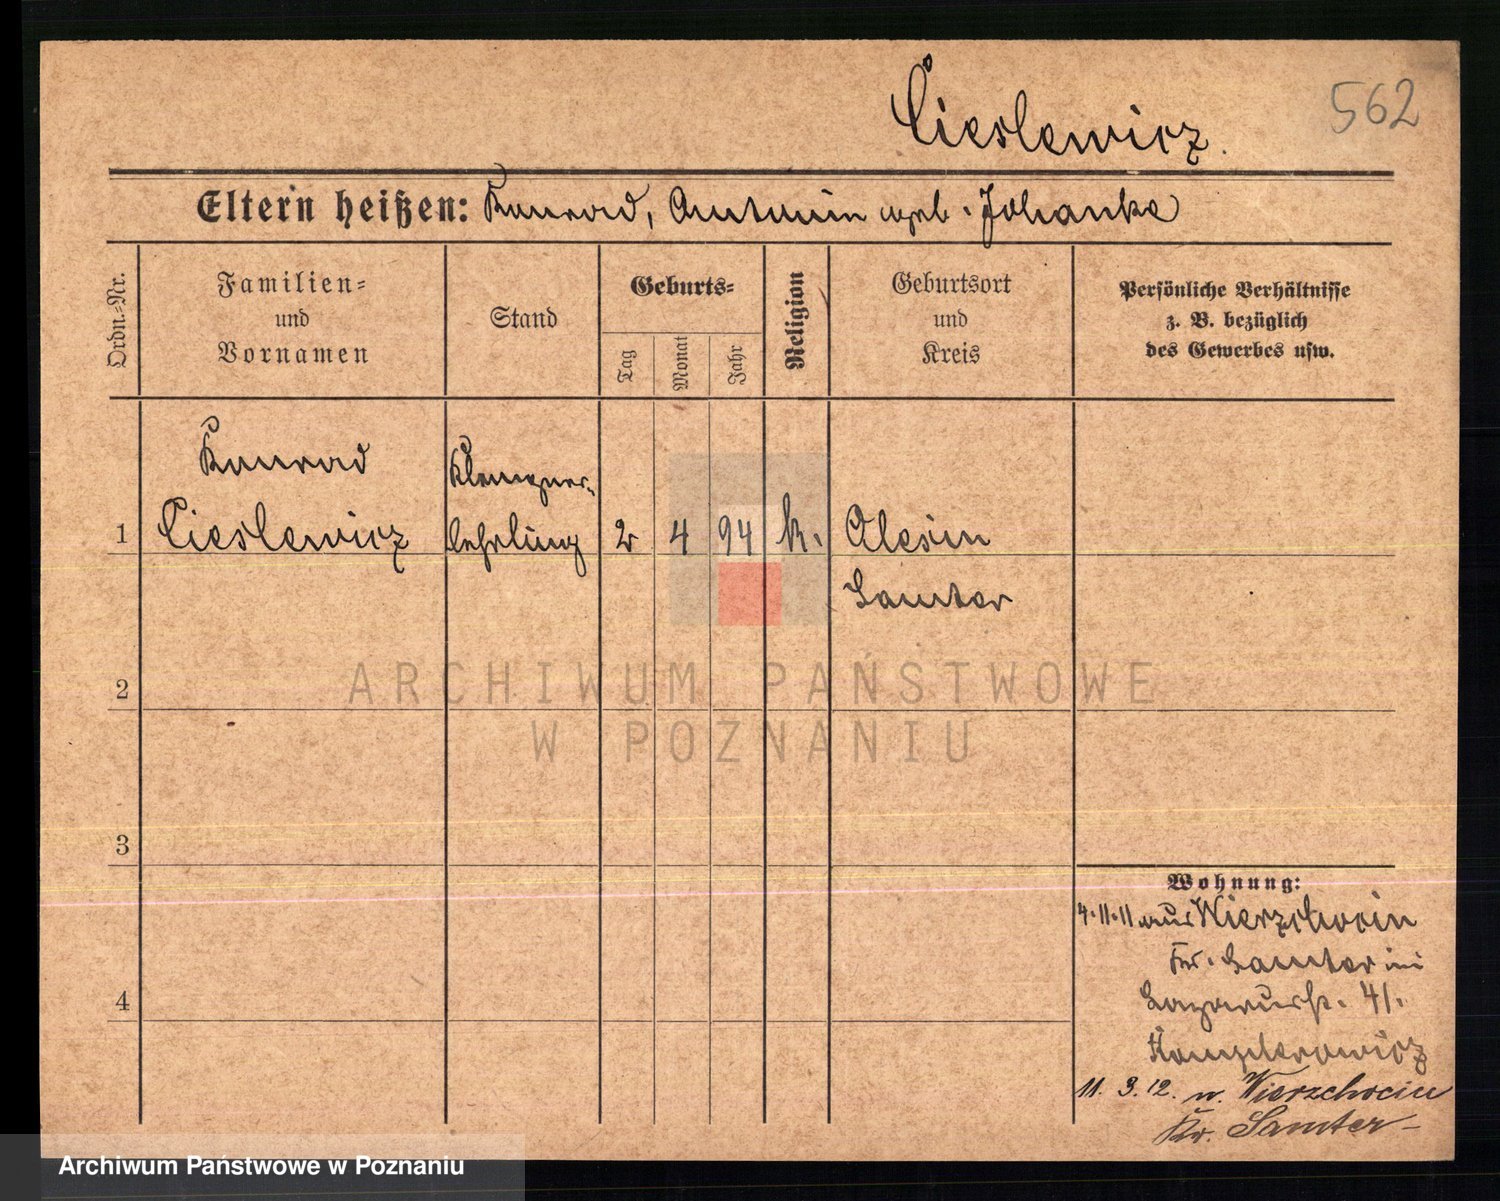 562
Cieslewicz.
Eltern heißen: Konrad, Antonin geb. Johanka
Ordn.-Nr.
Familien-
und
Vornamen
Stand
Geburts-
Tag
Monat
Jahr
Religion
Geburtsort
und
Kreis
Persönliche Verhältnisse
z. B. bezüglich
des Gewerbes usw.
1
Konrad
Cieslewicz
Klempner-
lehrling
2
4
94
k.
Samter
2
3
4
Wohnung:
4.11.11 aus Wierzchocin
Kr. Samter in
41.
11.3.12. n. Wierzchocin
Kr. Samter
ARCHIWUM PAŃSTWOWE
W POZNANIU
Archiwum Państwowe w Poznaniu